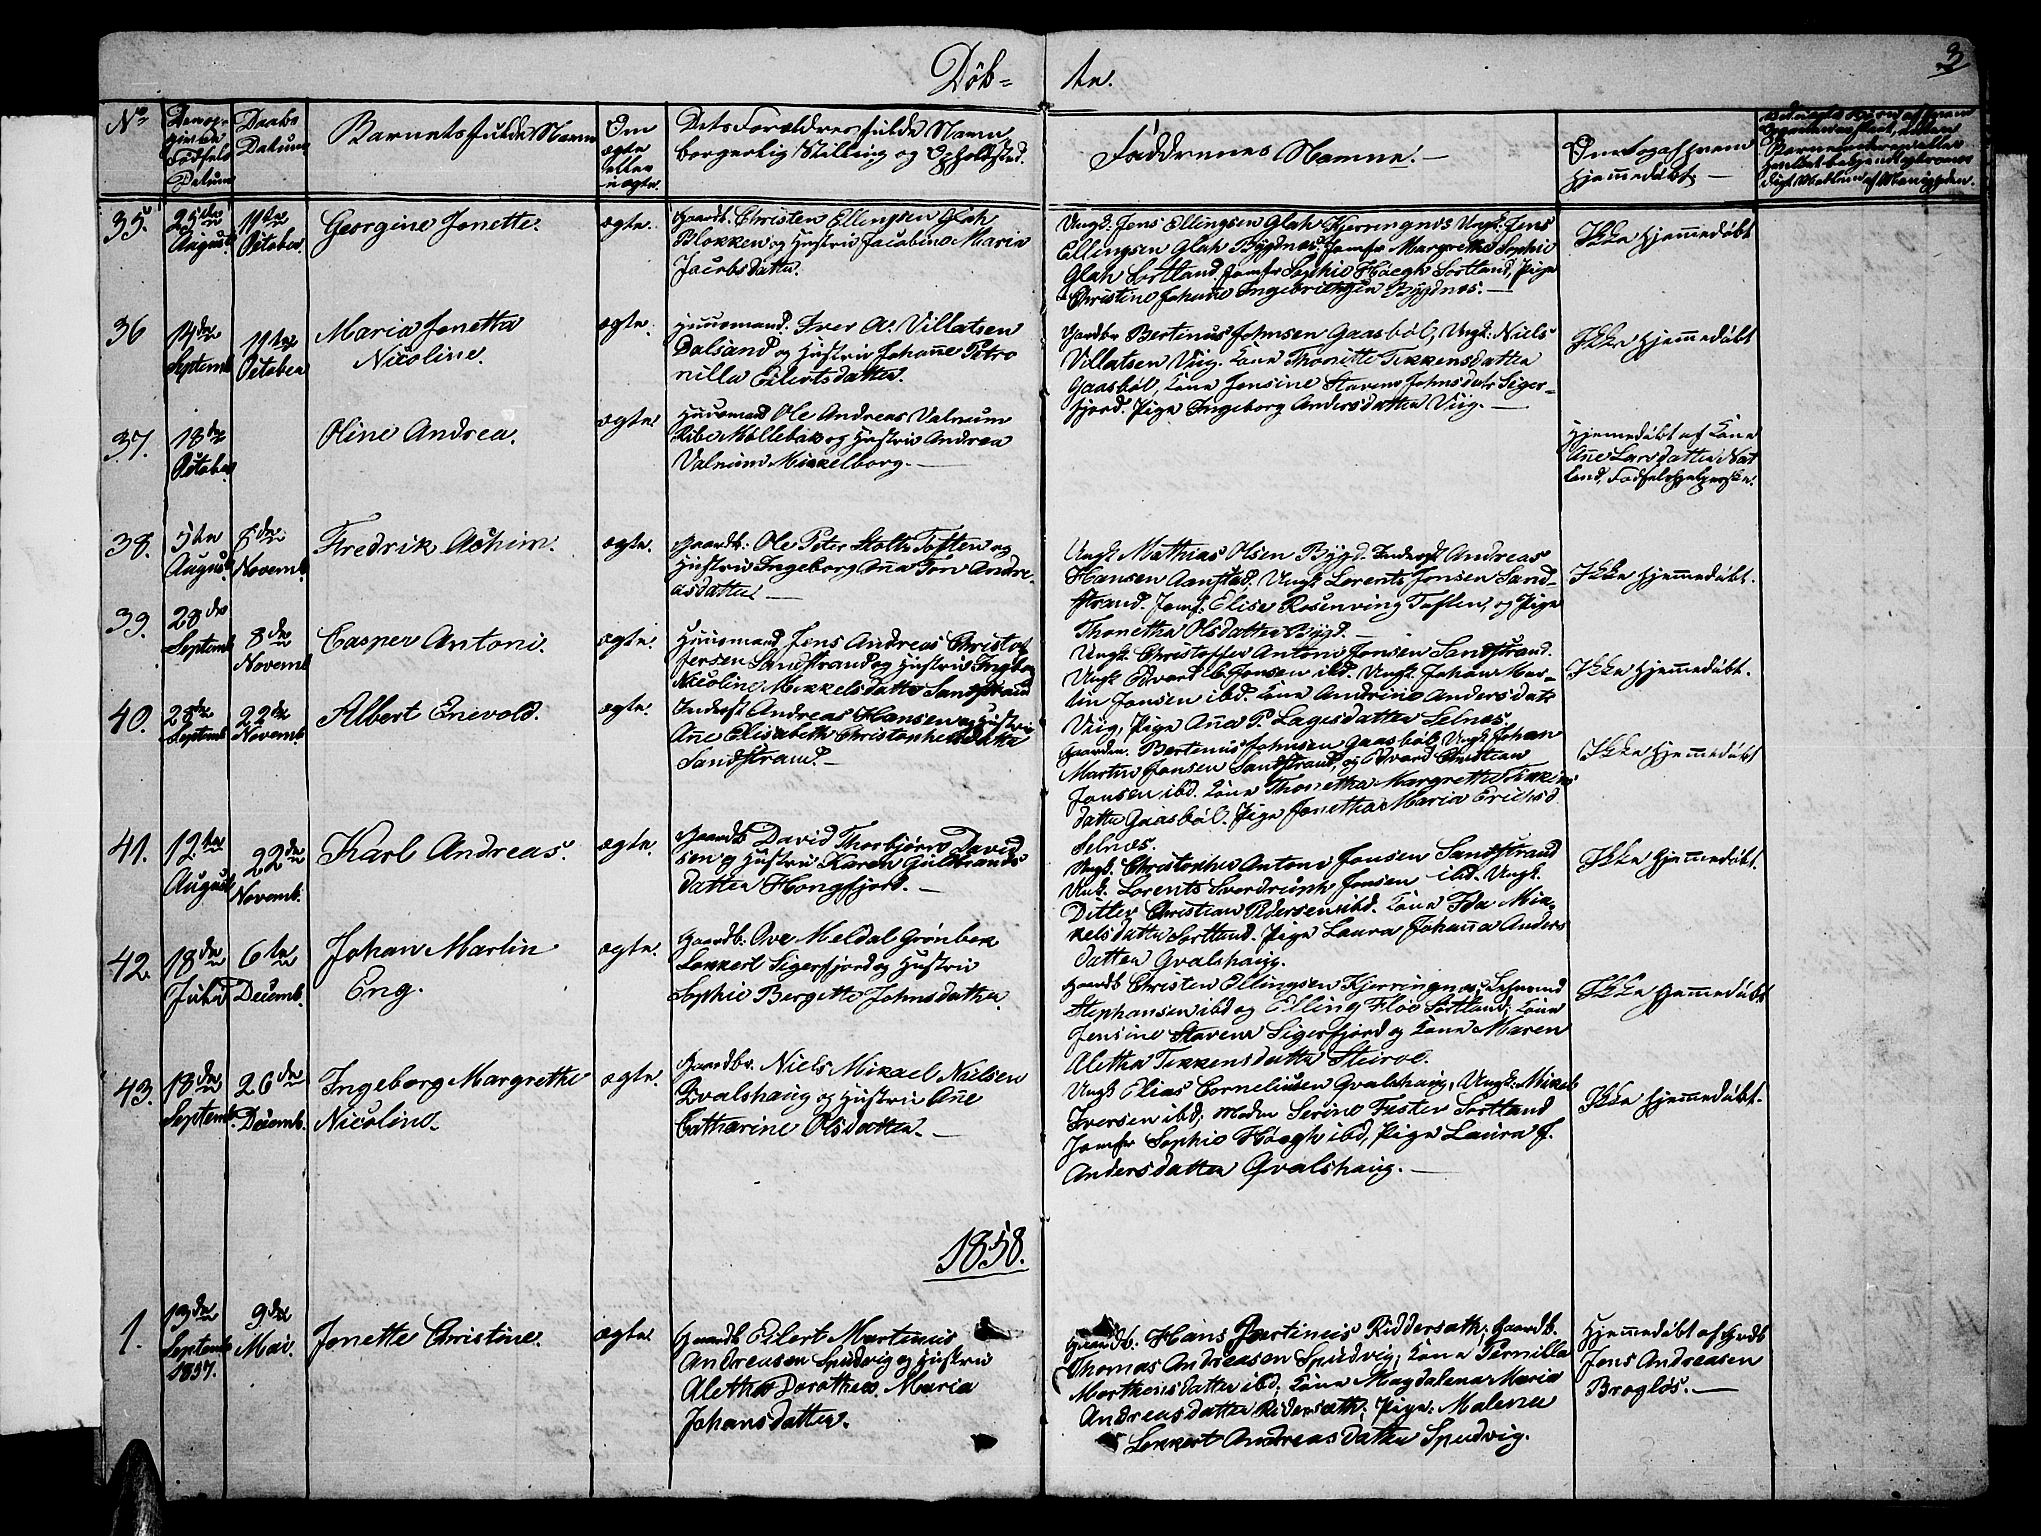 Döb- te.
3
No
Datum
Daabs Datum
Barnets fulde Navn
Om ægte eller uægte.
Dets Forældres fulde Navn,
borgerlig Stilling og Opholdsted.
Faddrenes Navne.
Hjemmedöbt
35.
25de August
11te October.
Georgine Jonette.
ægte.
Gaardb. Christen Ellingsen Glah
Blokken og Hustru Jacobine Maria
Jacobsdatter.
Ungk. Jens Ellingsen Glah Kjerringnes Ungk. Jens
Ellingsen Glah Bygdnes. Jomfr Margrethe Sophie
Glah Sortland, Jomfr Sophie Høegh Sortland, Pige
Christine Johanne Ingebrigtsen Bygdnes.—
Ikke hjemmedöbt
36
14de Septemb.
11te October
Maria Jonetta
Nicoline.
ægte.
Huusmand. Iver A. Villatsen
Dalsand og Hustru Johanne Petro
nilla Eilertsdatter.
Gardbr Bertinus Johnsen Gaasböl, Ungk: Niels
Villatsen Viig. Kone Thonette Tekkensdatter
Gaasböl, Kone Jensine Stavene Johnsdatr Siger-
fjord. Pige Ingeborg Andersdatter Viig.—
Ikke hjemmedöbt
37.
18de October.
Oline Andrea.
ægte.
Huusmand Ole Andreas Valnum
Ribe Möllebak og Hustru Andrea
Valnum Mikkelborg.—
Hjemmedöbt af Kone
Ane Larsdatter Nat
land, Födselshjelperske.
38.
5te August
8de Novemb.
Fredrik Achim.
ægte.
Gaardb. Ole Peter Holte Toften og
Hustru Ingeborg Anna Tov Andre-
asdatter—
Ungk. Mathias Olsen Bygd. Inderst Andreas
Hansen Aanstad. Ungk Lorents Jonsen Sand-
strand. Jomf. Elise Rosenving Toften, og Pige
Thonetha Olsdatter Bygd.—
Ikke hjemmedöbt.
39.
28de Septemb
8de Novemb
Casper Antoni.
ægte.
Huusmand Jens Andreas Christof
fersen Sandstrand og Hustru Ingbor
Nicoline Mikkelsdatter Sandstrand
Ungk. Christoffer Anton Jonsen Sandstrand.
Ungk Edvard C. Jonsen ibd. Ungk. Johan Mar-
tin Jonsen ibd. Kone Andrine Andersdatr
Viig, Pige Ana P. Lagesdatter Selnes.
Ikke hjemmedöbt.
40.
28de Septemb
22de Novemb.
Albert Enevold.
ægte.
Inderst Andreas Hansen og Hustru
Ane Elisabeth Christophersdatter
Sandstrand.—
Gaardm. Bertinus Johnsen Gaasböl, Ungk Johan
Martin Jonsen Sandstrand, og Edvard Christian
Jonsen ibd. Kone Thonetha Margrethe Tekkens
datter Gaasböl. Pige Jonetha Maria Erichsd
Selnes.
Ikke hjemmedöbt
41.
12te August
22de Novemb.
Karl Andreas.
ægte.
Gaardb David Thorbjörn David
sen og Hustru Karen Guldbrands
datter Hongfjord.—
Ungk. Christopher Anton Jonsen Sandstrand
Ungk. Lorents Sverdruph Jonsen ibd. Ungk.
Ditlev Christian Pedersen ibd. Kone Ida Mik-
kelsdatter Sortland. Pige Laura Johanna Anders
datter Qvalshaug.
Ikke hjemmedöbt.
42.
18de Juli
6te Decemb.
Johan Martin
Eng.
ægte.
Gaardb. Ove Meldal Grönbek
Lokkert Sigerfjord og Hustru
Sophie Bergette Johnsdatter.
Gaardb Christen Ellingsen Kjerringnes,
Stephansen ibd og Elling Floe Sortland; Kone
Jensine Stavene Sigerfjord og Kone Maren
Aletha Tekkensdatter Steiroe.
Ikke hjemmedöbt
43.
18de Septemb.
26de Decemb.
Ingeborg Margrethe
Nicoline.
ægte.
Gaardbr. Niels Mikael Nielsen
Qvalshaug og Hustru Ane
Catharine Olsdatter.—
Ungk Elias Corneliussen Qvalshaug, Ungk: Mikal
Iversen ibd; Madm Serine Fester Sortland
Jomfr Sophie Høegh ibd, Pige Laura J.
Andersdatter Qvalshaug.—
Ikke hjemmedöbt.
1858.
1.
13de Septemb 1857.
9de Mai.
Jonette Christine.
ægte.
Gaardb Eilert Martinus
Andreasen Spudvig og Hustru
Aletha Dorothea Maria
Johansdatter.
Gaardb. Hans Joertineus Riddersath; Gaardb.
Thomas Andreasen Spudvig; Kone Pernilla
Morthensdatter ibd; Kone Magdalena Maria
Andreasdatter Ridersath; Pige: Malene
Lokkert Andreasdatter Spudvig.
Hjemmedöbt af Grdb
Jens Andreasen
Braglös.—